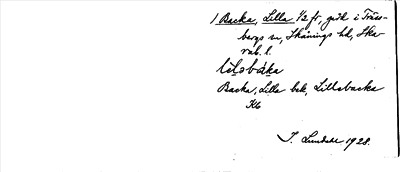 1 Backa, Lilla 1/2 fr, gård i Träss-
bergs sn, Skånings hd, Ska-
rab. l.
lìlabàka
Backa, Lilla bek, Lillabacka
Kb
I. Lundahl 1928.